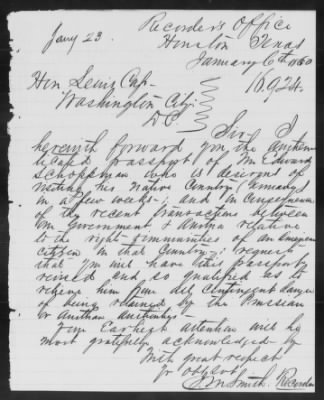 Recorder's Office
Jany 23.
Houston Texas
January 6th 1860
Hon Lewis Cass
16.924.
Washington City
D.C.
Sir I
herewith forward you the authen
ticated passport of Mr Edward
Schoppman who is desirous of
visiting his Native Country (Germany)
in a few weeks; and in consequence
of the recent transactions between
our Government & Austria relative
to the right & immunities of an American
citizen in that Country, I request
that you will have this passport
revised and so qualified as to
relieve him from all contingent danger
of being retained by the Prussian
or Austrian authorities-
Your Earliest attention will be
most gratefully acknowledged by
With great respect
Yr obt svt
Smith Recorder